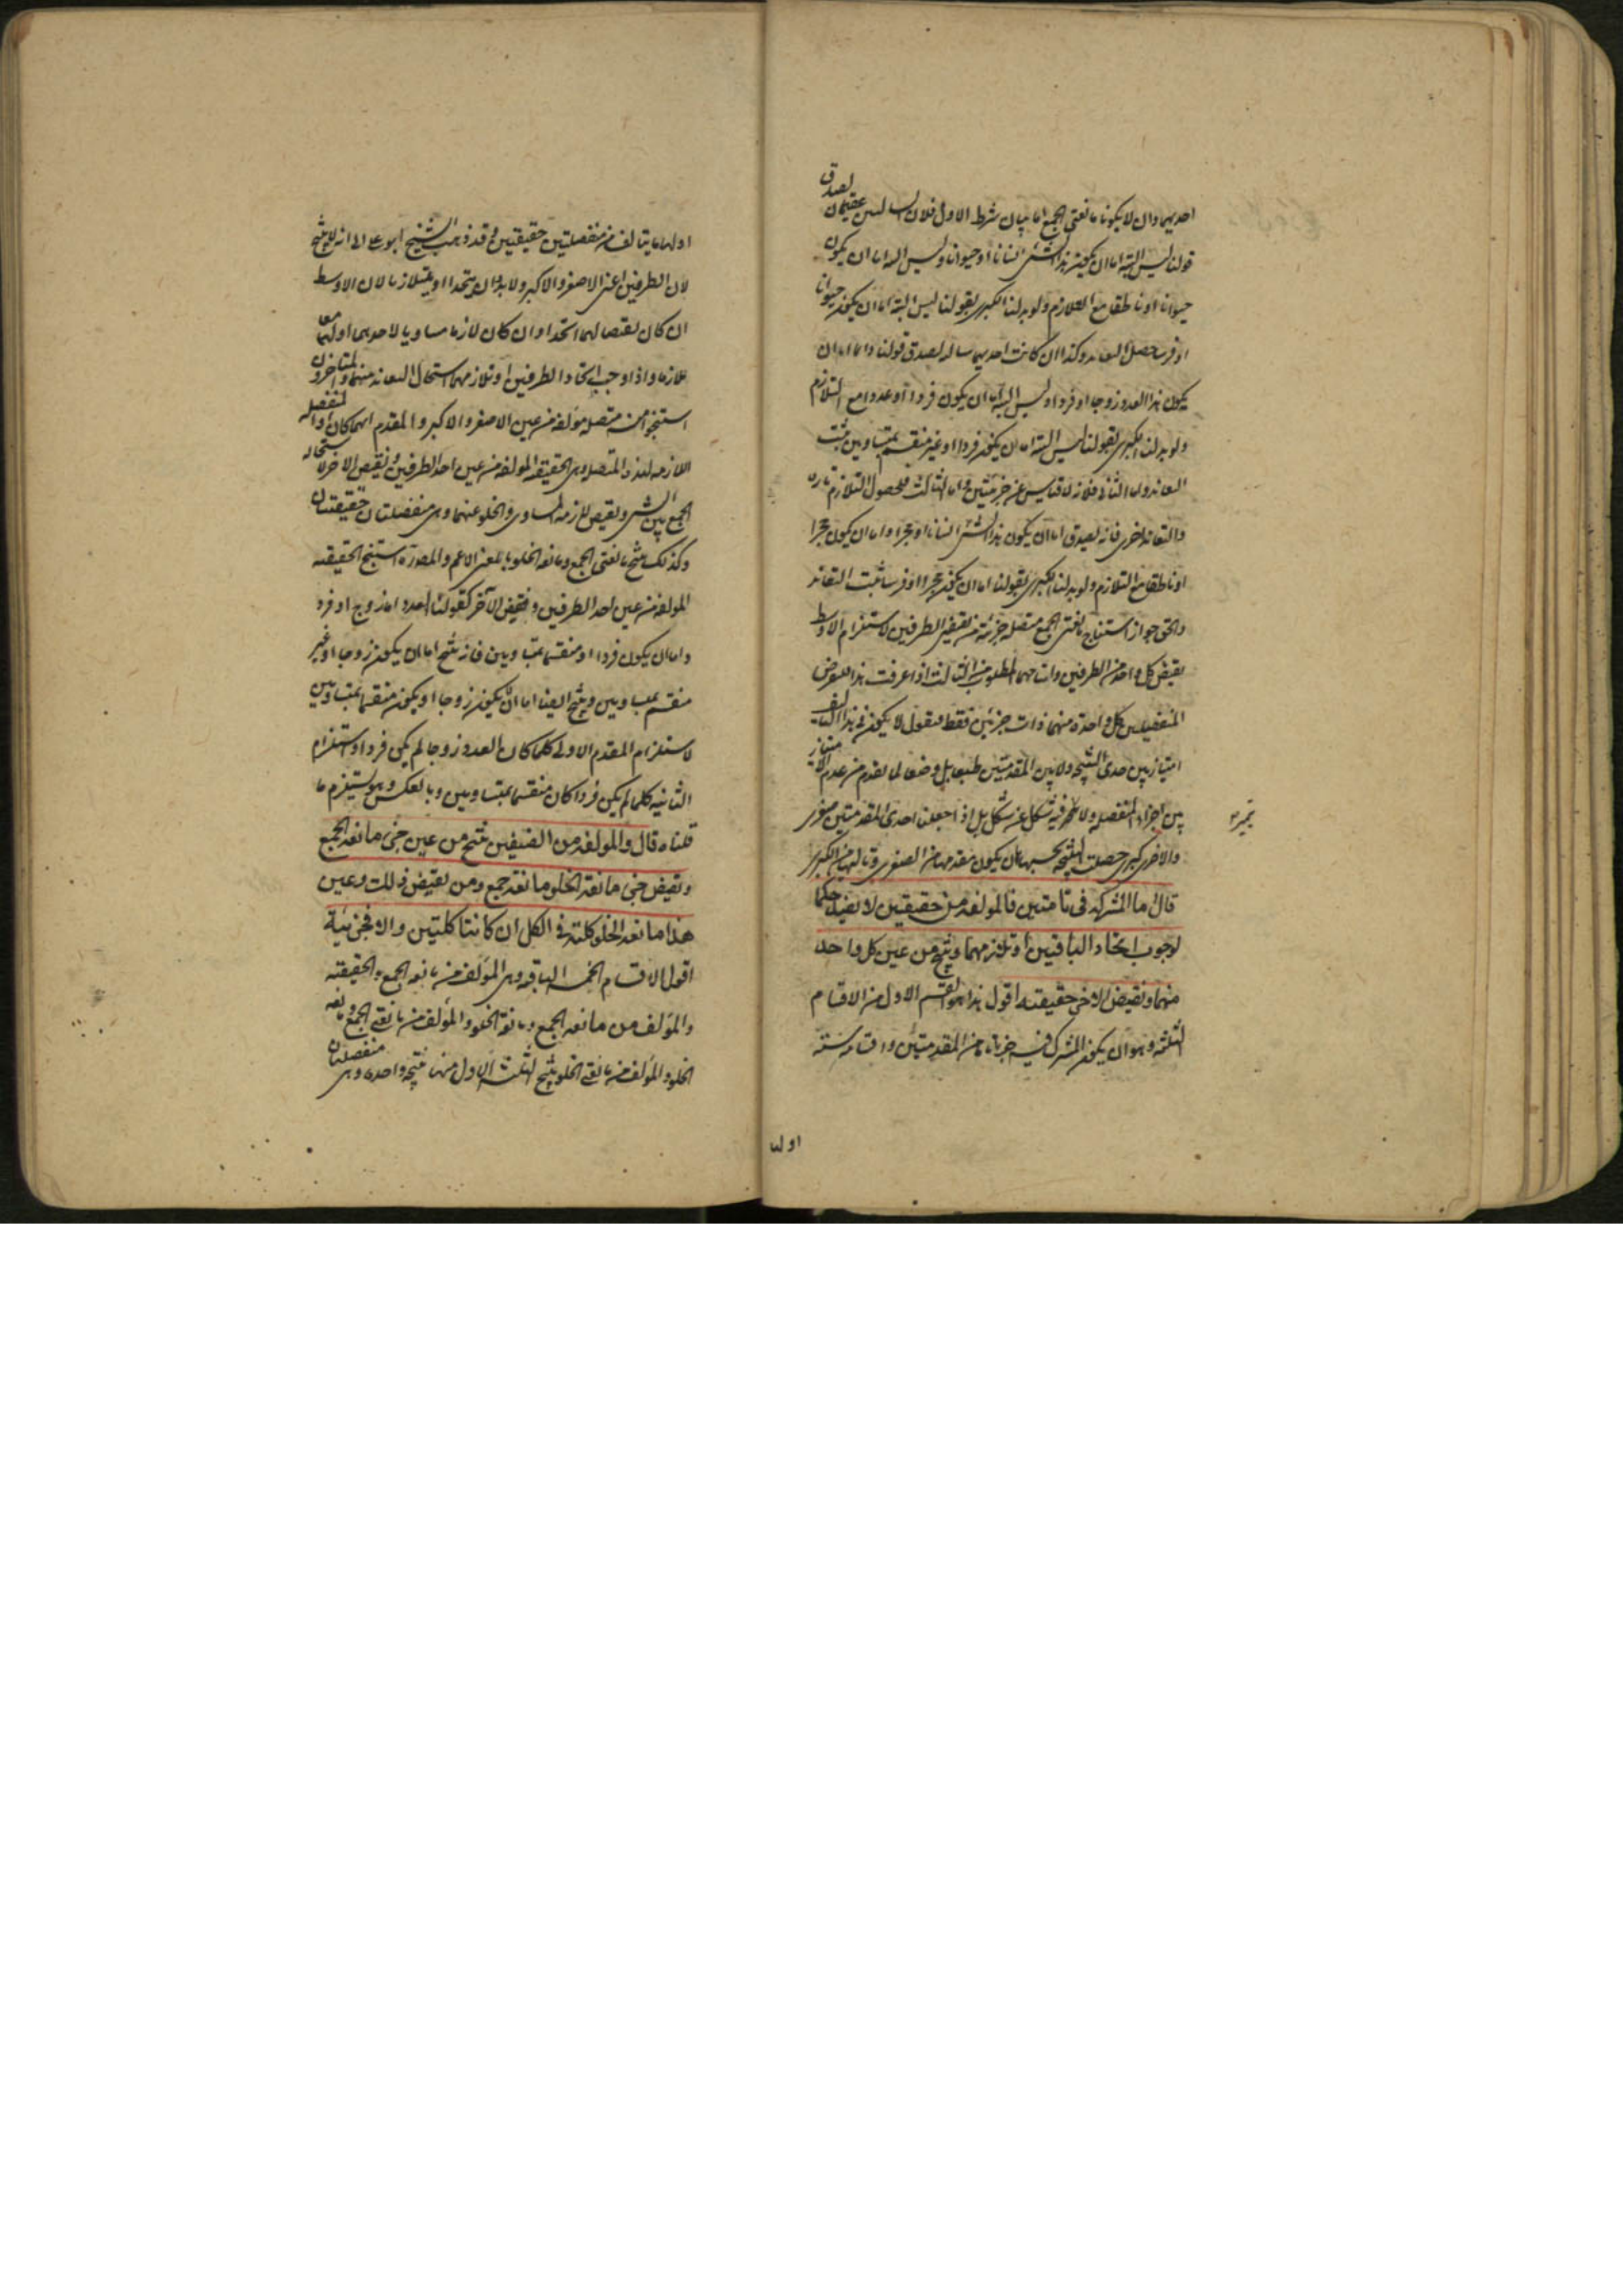 احديهما وان لا يكونا مانعتى الجمع اما بيان شرط الاول فلان السالبتين عقيمتان لصدق
قولنا ليس البتة اما ان يكون هذا الشئ انسانا او حيوانا وليس البتة اما ان يكون
حيوانا او ناطقا مع التلازم ولو بدلنا الكبرى بقولنا ليس البتة اما ان يكون حيوانا
او فرسا حصل التعاند وكذا ان كانت احديهما سالبة لصدق قولنا دائما اما ان
يكون هذا العدد زوجا او فردا وليس البتة اما ان يكون فردا او عددا مع التلازم
ولو بدلنا الكبرى بقولنا ليس البتة اما ان يكون فردا او غير منقسم بمتساويين ثبت
التعاند واما الثانى فلانه لا قياس عن جزئيتين واما الثالث فلحصول التلازم تارة
والتعاند اخرى فانه يصدق اما ان يكون هذا الشئ انسانا او حجرا واما ان يكون حجرا
او ناطقا مع التلازم ولو بدلنا الكبرى بقولنا اما ان يكون حجرا او فرسا ثبت التعاند
والحق جواز استنتاج مانعتى الجمع متصلة جزئية من نقيضى الطرفين لاستلزام الاوسط
نقيض كل واحد من الطرفين وانتاجهما المطلوب من الثالث اذا عرفت هذا فلنفرض
المنفصلتين كل واحدة منهما ذات جزئين فقط فنقول لا يكون فى هذا التاليف
امتياز بين حدى النتيجة ولا بين المقدمتين طبعا بل وضعا لما تقدم من عدم الامتياز
بين اجزاء المنفصلة ولا فيه شكل عن شكل بل اذا جعلنا احدى المقدمتين صغرى
والاخرى كبرى حصلت النتيجة بحسبهما بان يكون مقدمها من الصغرى وتاليها من الكبرى
قال اما المشتركة فى تامتين فالمولفة من حقيقتين لا يفيد حكما
لوجوب اتحاد الباقيين او تلازمهما وينتج من عين كل واحد
منهما ونقيض الاخرى حقيقته اقول هذا هو القسم الاول من الاقسام
الثلثة وهو ان يكون المشترك فيه جزءا تاما من المقدمتين واقسامه ستة
اولها
اولها ما يتالف من منفصلتين حقيقيتين وقد ذهب الشيخ ابو على الى انه لا ينتج
لان الطرفين اعنى الاصغر والاكبر ولا بد ان يتحدا او يتلازما لان الاوسط
ان كان نقيضا لهما اتحدا وان كان لازما مساويا لاحدهما او لهما معا
تلازما واذا وجب اتحاد الطرفين او تلازمهما استحال التعاند منهما والمتاخرون
استنتجوا منه متصلة مؤلفة من عين الاصغر والاكبر والمقدم ايهما كان والمنفصلة
اللازمة لهذه المتصلة وهى الحقيقية المولفة من عين احد الطرفين ونقيض الاخر لاستحالة
الجمع بين الشئ ونقيض لازمه المساوى والخلو عنهما وهى منفصلتان حقيقيتان
وكذلك ينتج مانعتى الجمع ومانعة الخلو بالمعنى الاعم والمص ره استنتج الحقيقية
المولفة من عين احد الطرفين ونقيض الاخر كقولنا العدد اما زوج او فرد
واما ان يكون فردا او منقسما بمتساويين فانه ينتج اما ان يكون زوجا او غير
منقسم بمتساويين وينتج ايضا اما ان لا يكون زوجا او يكون منقسما بمتساويين
لاستلزام المقدم الاولى كلما كان العدد زوجا لم يكن فردا واستلزام
الثانية كلما لم يكن فردا كان منقسما بمتساويين وبالعكس وهو يستلزم ما
قلناه قال والمولفة من الصنفين ينتج من عين جزئ مانعة الجمع
ونقيض جزئ مانعة الخلو مانعة جمع ومن نقيض ذلك وعين
هذا مانعة الخلو كلية فى الكل ان كانتا كليتين والا فجزئية
اقول الاقسام الخمسة الباقية وهى المؤلف من مانعة الجمع والحقيقية
والمؤلف من مانعة الجمع ومانعة الخلو والمؤلف من مانعتى الجمع ومانعة
الخلو والمؤلف من مانعتى الخلو ينتج الثلثة الاول منها نتيجة واحدة وهى منفصلتان